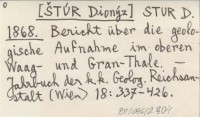 [ŠTÚR Dionýz] STUR D.
1868. Bericht über die geolo-
gische Aufnahme im oberen
Waag - und Gran-Thale. -
Jahrbuch der k.k. Geolog. Reichsan-
stalt (Wien) 18: 337-426.